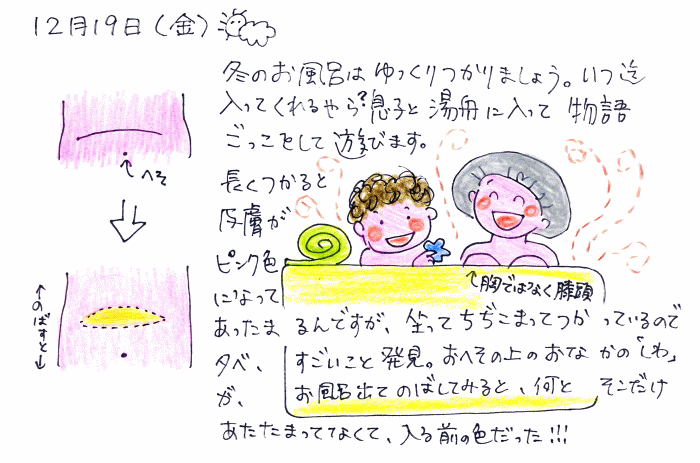 12月19日（金）
冬のお風呂はゆっくりつかりましょう。いつ迄
入ってくれるやら?息子と湯舟に入って物語
ごっこをして遊びます。
長くつかると
皮膚が
ピンク色
になって
あったまるんですが、坐ってちぢこまってつかっているので
夕べ、すごいこと発見。おへその上のおなかの「しわ」
が、お風呂出てのばしてみると、何とそこだけ
あたたまってなくて、入る前の色だった!!!
↑胸ではなく膝頭
↑へそ
←のばすと→